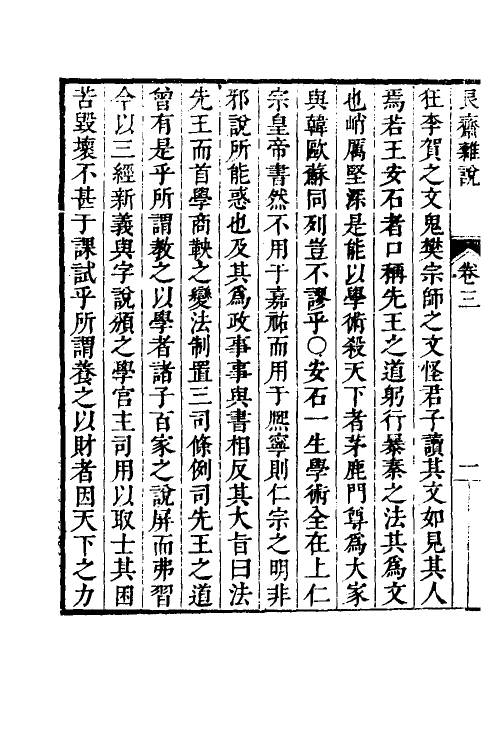 艮齋雜說
卷三
一
狂李賀之文鬼樊宗師之文怪君子讀其文如見其人
焉若王安石者口稱先王之道躬行暴秦之法其爲文
也峭厲堅深是能以學術殺天下者茅鹿門尊爲大家
與韓歐蘇同列豈不謬乎〇安石一生學術全在上仁
宗皇帝書然不用于嘉祐而用于熈寧則仁宗之明非
邪說所能惑也及其爲政事事與書相反其大旨曰法
先王而首學商鞅之變法制置三司條例司先王之道
曾有是乎所謂教之以學者諸子百家之說屏而弗習
今以三經新義與字說頒之學官主司用以取士其困
苦毀壞不甚于課試乎所謂養之以財者因天下之力